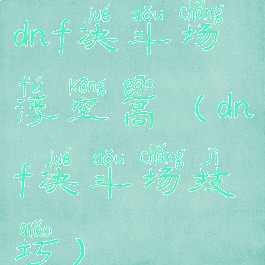 jué dǒu chǎng
dnf决斗场
fú kōng gāo
浮空高（dn
jué dǒu chǎng jì
f决斗场技
qiǎo
巧）